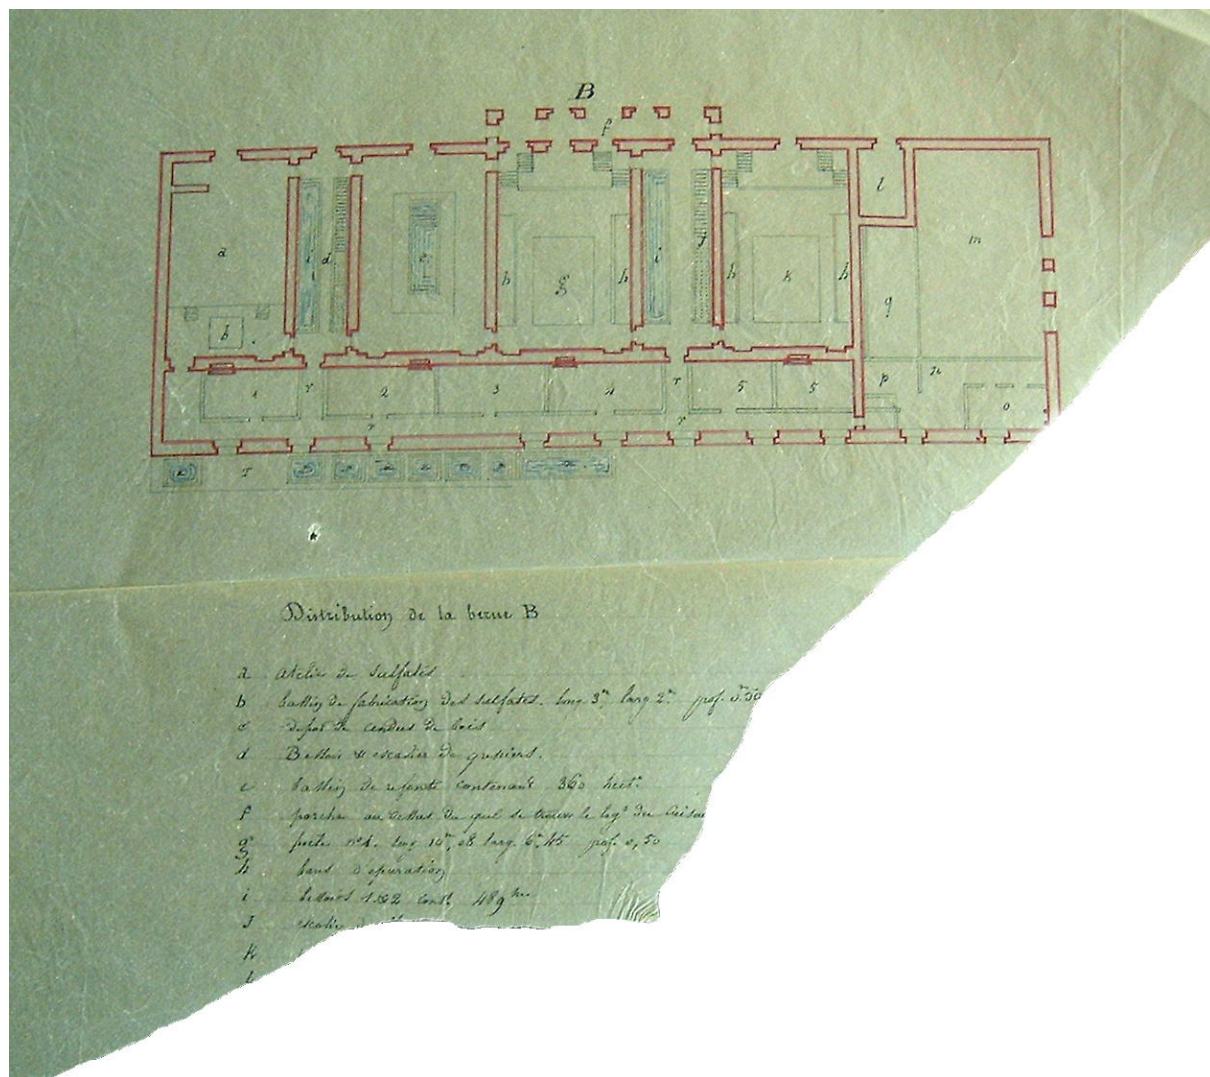 B
f
l
a
i
d
e
i
J
m
h
g
h
h
k
h
q
b
p
n
1
r
2
3
4
r
5
5
o
r
r
T
Distribution de la berne B
a atelier de sulfates
b bassin de fabrication des sulfates. long. 3m larg 2m prof. 0m50
c depot de cendres de bois
d Bessoir et escalier de greniers.
e bassin de refonte contenant 360 hect.
f porche au dessus du quel se trouve le log.t du
g poele n°1. long 10m,08 larg. 6m,45 prof. 0,50
h bans d'epuration
i bessoirs 1 et 2 cont. 489 hec
J escalier
K
l